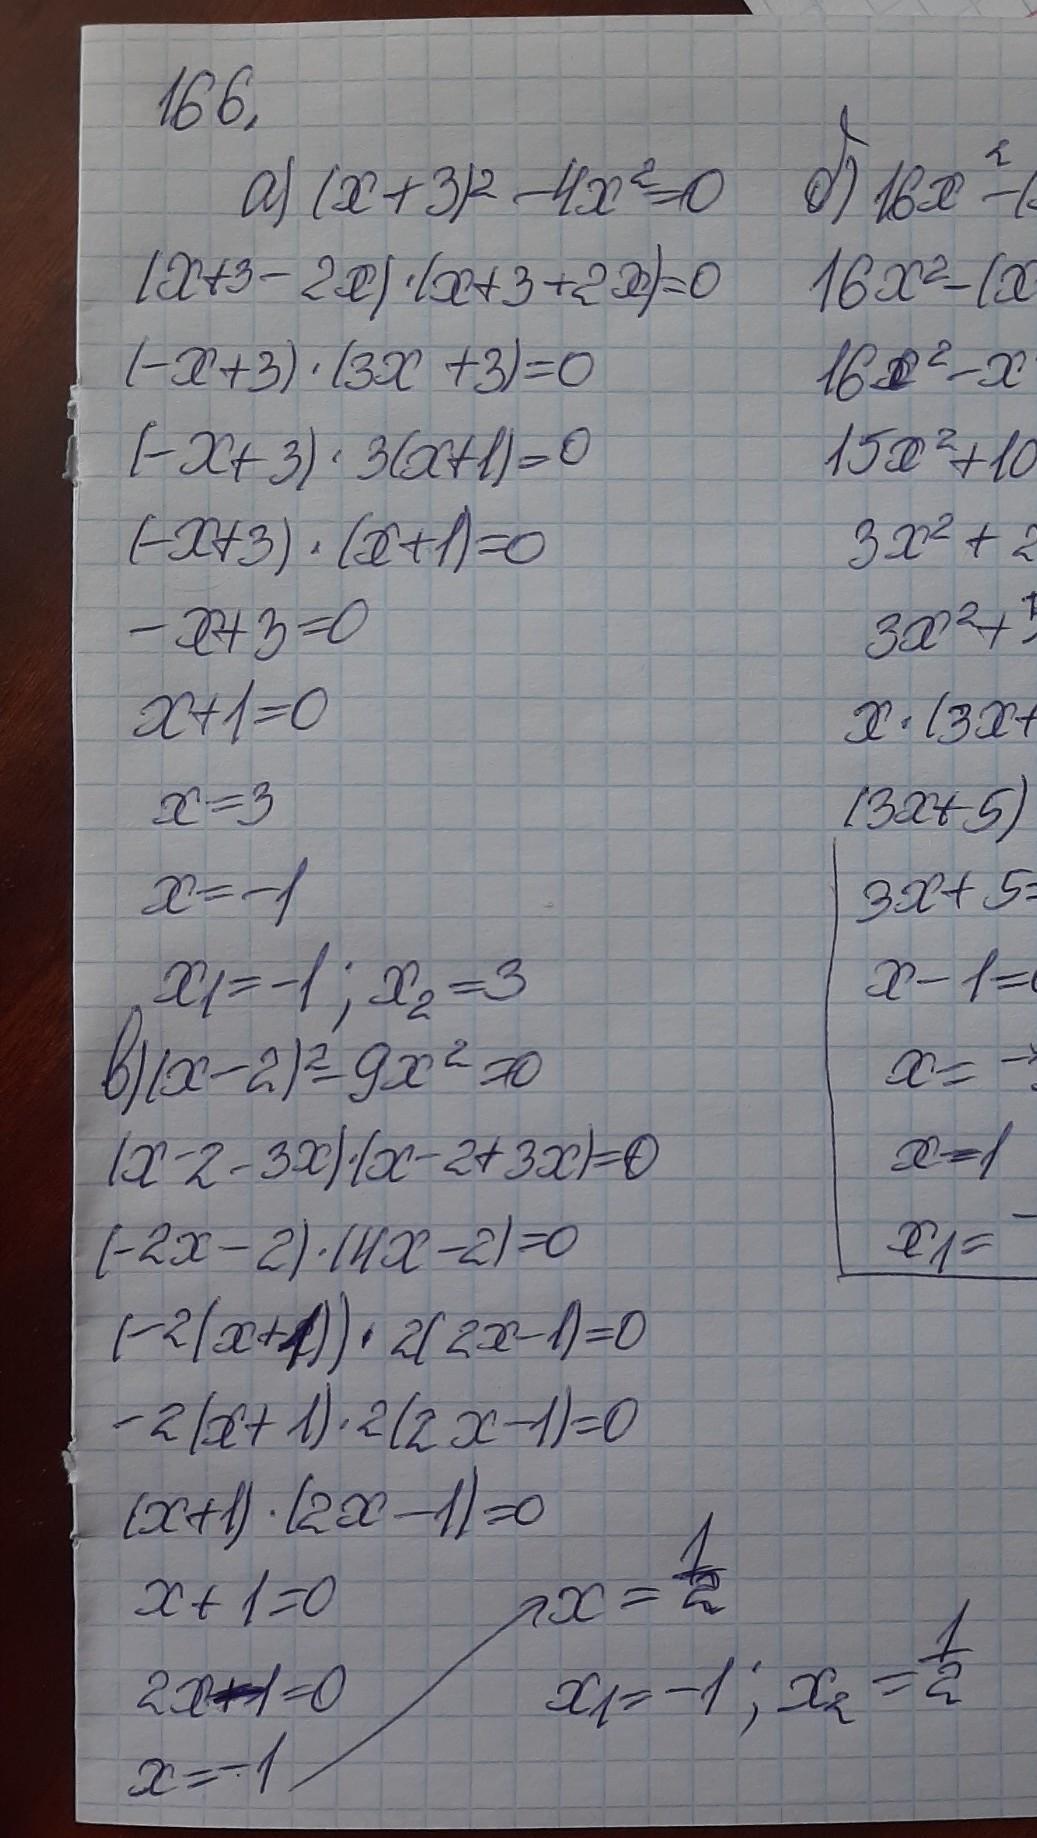 166.
а) (x+3)² -4x²=0
(x+3-2x)·(x+3+2x)=0
(-x+3)·(3x+3)=0
(-x+3)·3(x+1)=0
(-x+3)·(x+1)=0
-x+3=0
x+1=0
x=3
x=-1
x₁=-1; x₂=3
в) (x-2)²-9x²=0
(x-2-3x)·(x-2+3x)=0
(-2x-2)·(4x-2)=0
(-2(x+1))·2(2x-1)=0
-2(x+1)·2(2x-1)=0
(x+1)·(2x-1)=0
x+1=0
2x-1=0
x=-1
x=1/2
x₁=-1; x₂=1/2
б) 16x²-(
16x²-(x
16x²-x
15x²+10
3x²+2
3x²+
x·(3x+
(3x+5)
3x+5=
x-1=
x=-
x=1
x₁=-